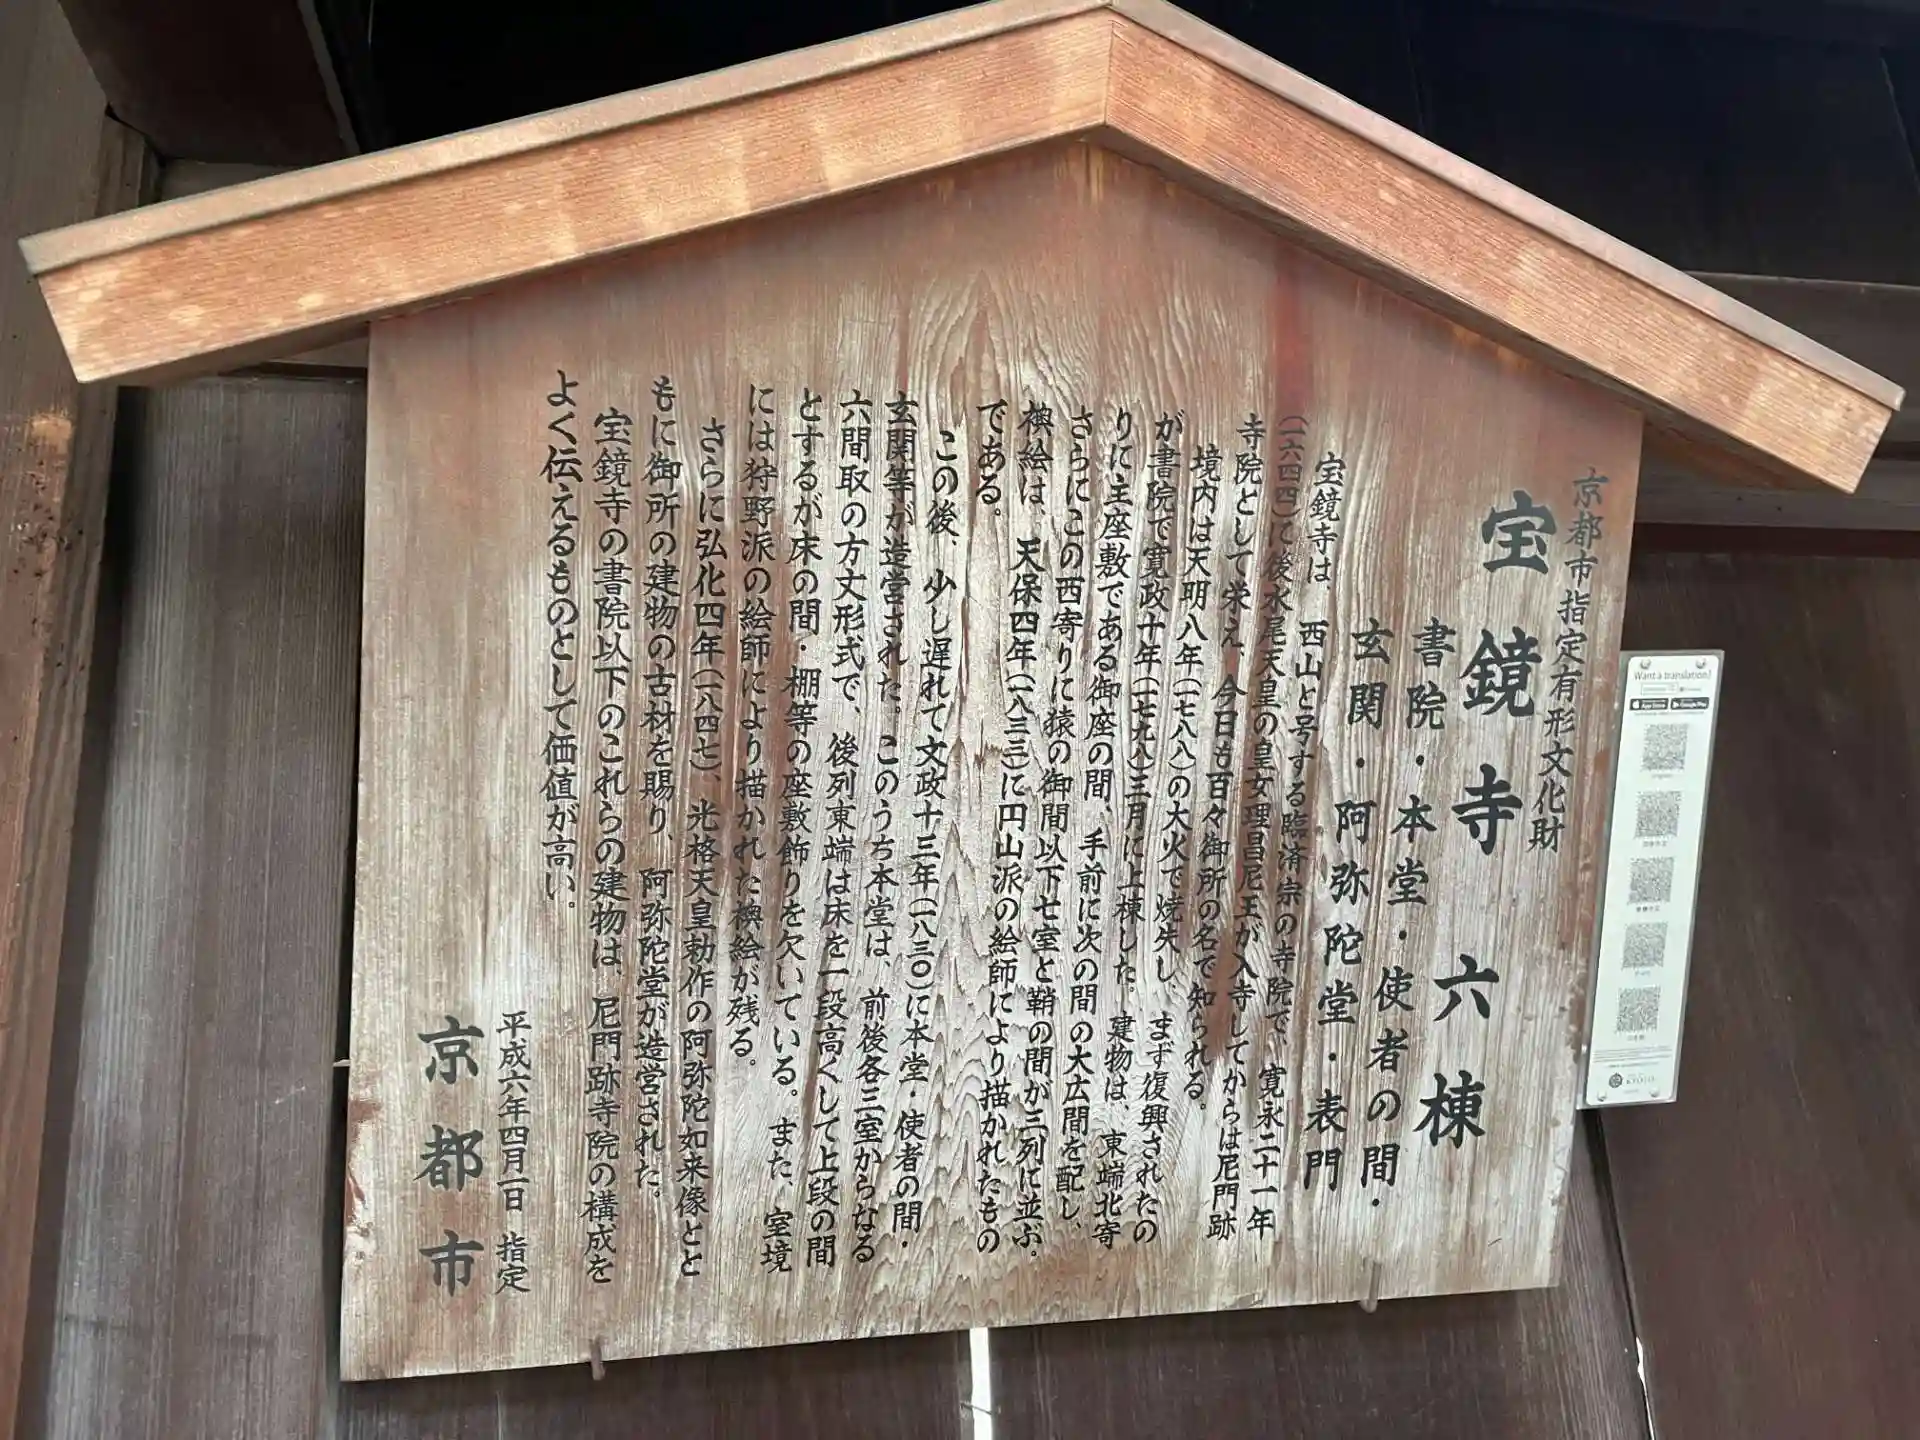 京都市指定有形文化財
宝鏡寺 六棟
書院・本堂・使者の間・
玄関・阿弥陀堂・表門
宝鏡寺は、西山と号する臨済宗の寺院で、寛永二十一年
(一六四四)に後水尾天皇の皇女理昌尼王が入寺してからは尼門跡
寺院として栄え、今日も百々御所の名で知られる。
境内は天明八年(一七八八)の大火で焼失し、まず復興されたの
が書院で寛政十年(一七九八)三月に上棟した。建物は、東端北寄
りに主座敷である御座の間、手前に次の間の大広間を配し、
さらにこの西寄りに猿の御間以下七室と鞘の間が三列に並ぶ。
襖絵は、天保四年(一八三三)に円山派の絵師により描かれたもの
である。
この後、少し遅れて文政十三年(一八三〇)に本堂・使者の間・
玄関等が造営された。このうち本堂は、前後各三室からなる
六間取の方丈形式で、後列東端は床を一段高くして上段の間
とするが床の間・棚等の座敷飾りを欠いている。また、室境
には狩野派の絵師により描かれた襖絵が残る。
さらに弘化四年(一八四七)、光格天皇勅作の阿弥陀如来像とと
もに御所の建物の古材を賜り、阿弥陀堂が造営された。
宝鏡寺の書院以下のこれらの建物は、尼門跡寺院の構成を
よく伝えるものとして価値が高い。
平成六年四月一日 指定
京都市
Want a translation?
App Store
Google Play
KYOTO